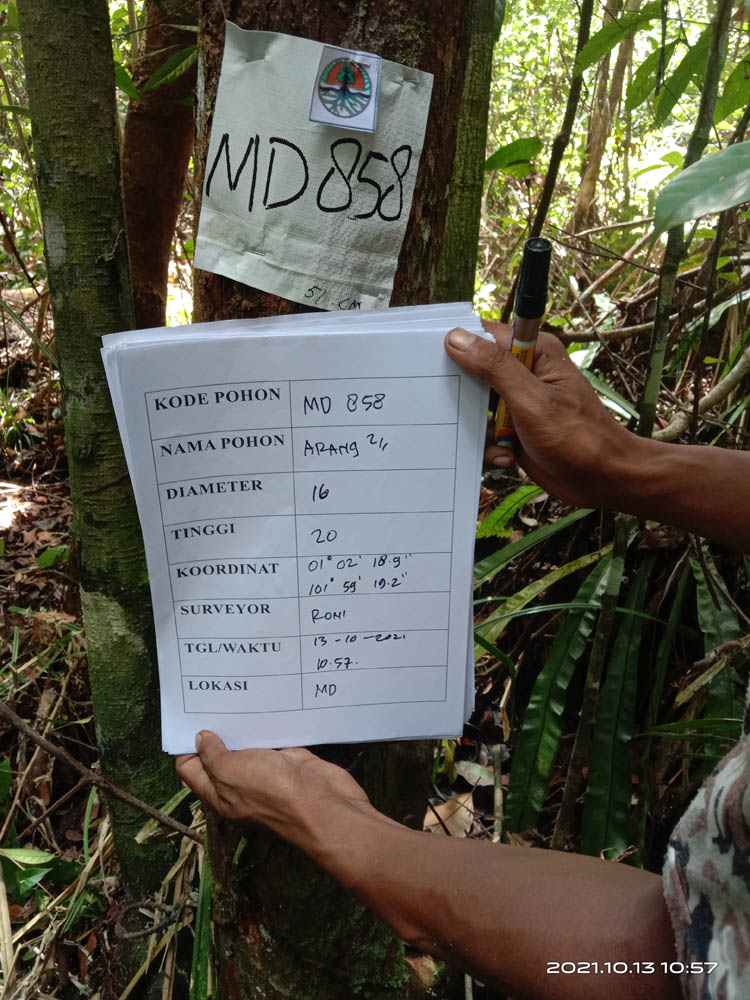 MD 858
KODE POHON MD 858
NAMA POHON ARANG 2/1
DIAMETER 16
TINGGI 20
KOORDINAT 01° 02' 18.9"
101° 59' 19.2"
SURVEYOR RONI
TGL/WAKTU 13-10-2021
10.57.
LOKASI MD
2021.10.13 10:57